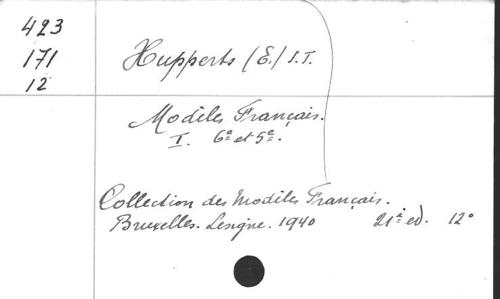 423
171
12
Hupperts (E.) S.T.
Modèles Français.
I. 6e et 5e.
Collection des Modèles Français.
Bruxelles. Lesigne. 1940 21e ed. 12°